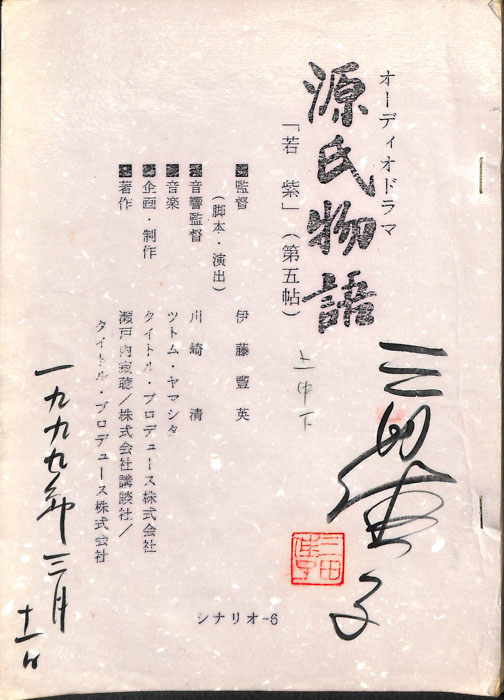 オーディオドラマ
源氏物語
「若 紫」（第五帖）
上中下
■監督 伊藤豐英
（脚本・演出）
■音響監督 川崎 清
■音楽 ツトム・ヤマシタ
■企画・制作 タイトル・プロデュース株式会社
■著作 瀬戸内寂聴／株式会社講談社／
タイトル・プロデュース株式会社
三田佳子
三田佳子
一九九九年三月
十一日
シナリオ-6